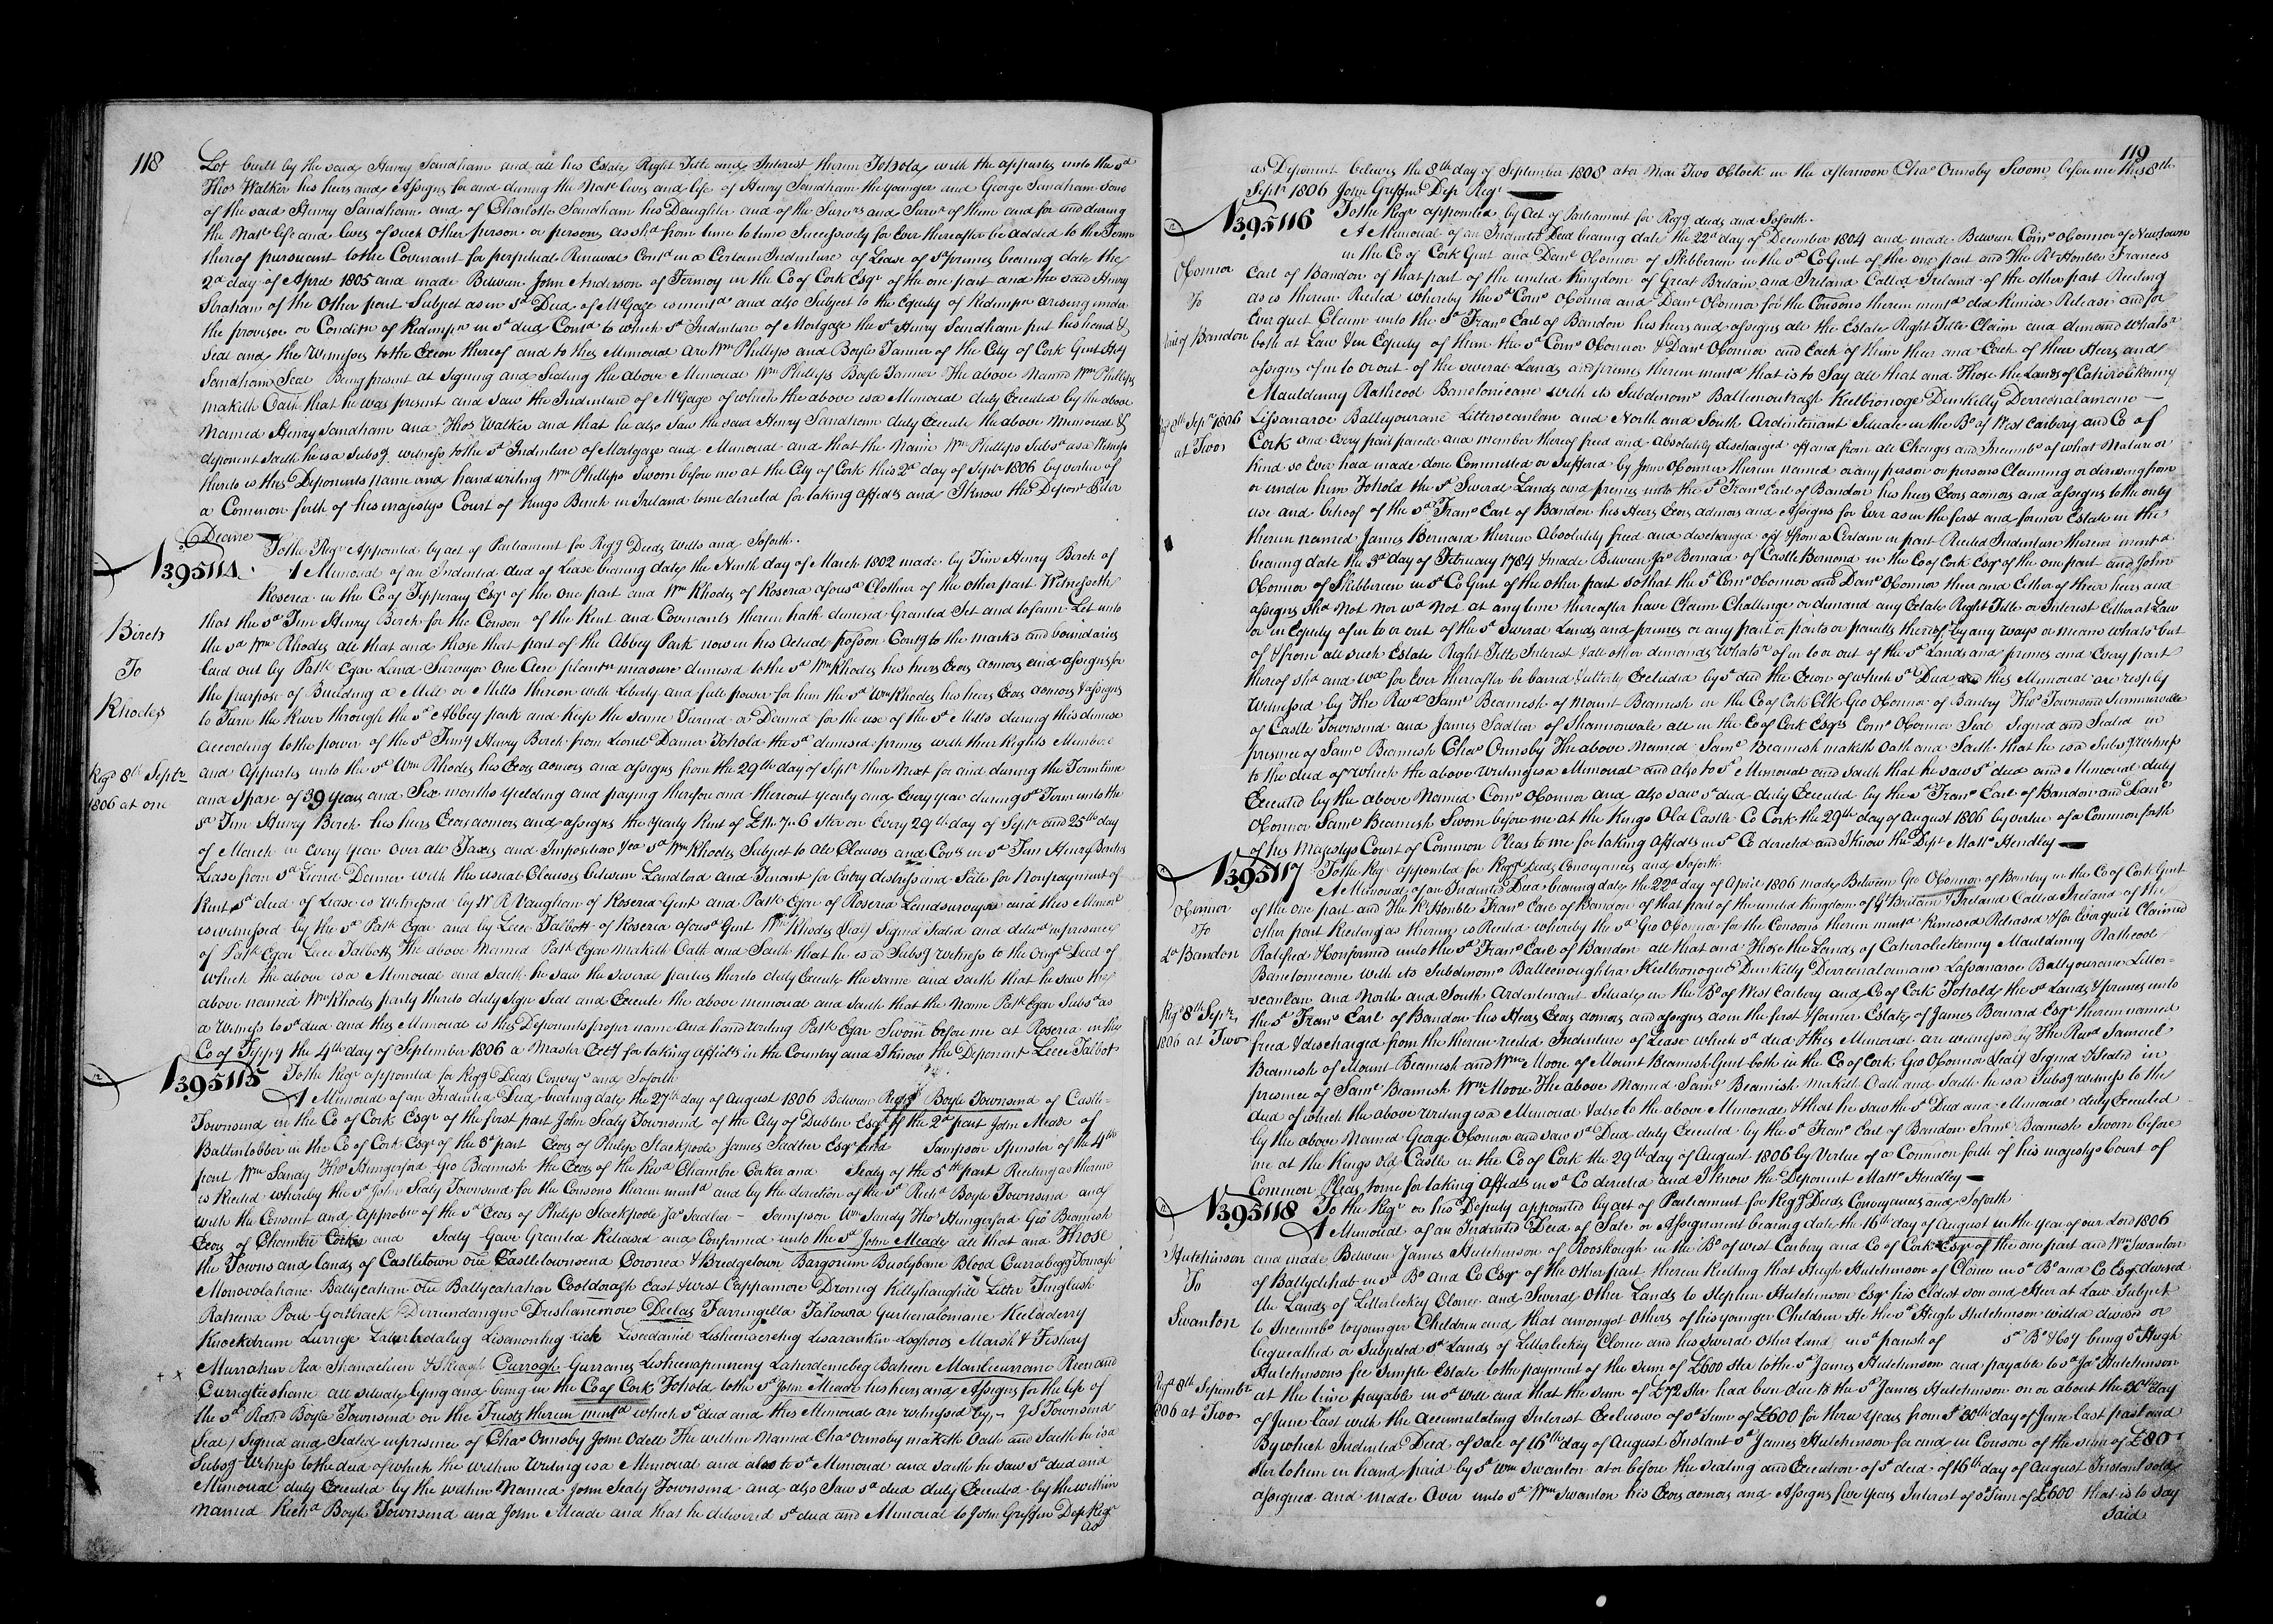 118
Lot built by the said Henry Sandham and all his Estate Right Title and Interest therein To hold with the appurtes unto the sd
Thos Walker his heirs and Assigns for and during the Natl lives and life of Henry Sandham the younger and George Sandham sons
of the said Henry Sandham and of Charlotte Sandham his Daughter and of the Survrs and Survr of them and for and during
the Natl life and lives of such Other person or persons as shd from time to time Successively for Ever thereafter be added to the Term
thereof pursuant to the Covenant for perpetual Renewal Contd in a Certain Indenture of Lease of sd premes bearing date the
2d day of April 1805 and made Between John Anderson of Fermoy in the Co of Cork Esqr of the one part and the said Henry
Sandham of the Other part Subject as in sd Deed of Mtgage is mentd and also Subject to the Equity of Redempn arising under
the provisoe or Conditn of Redempn in sd deed Contd to which sd Indenture of Mortgage the sd Henry Sandham put his hand &
Seal and the Witnesses to the Exon thereof and to this Memorial are Wm Phillips and Boyle Tanner of the City of Cork Gent Hy
Sandham Seal Being present at Signing and Sealing the above Memorial Wm Phillips Boyle Tanner The above Named Wm Phillips
maketh Oath that he was present and saw the Indenture of Mtgage of which the above is a Memorial duly Executed by the above
Named Henry Sandham and Thos Walker and that he also saw the said Henry Sandham duly Execute the above Memorial &
deponent saith he is a Subsg witness to the sd Indenture of Mortgage and Memorial and that the Name Wm Phillips Subsd as a Witness
thereto is this Deponents Name and handwriting Wm Phillips Sworn before me at the City of Cork this 2d day of Septr 1806 by vertue of
a Common forth of his majestys Court of Kings Bench in Ireland to me directed for taking affidts and I know this Deport Peter
Deane
1395114
To the Regr Appointed by act of Parliament for Regg Deeds Wills and Soforth.
A Memorial of an Indented deed of Lease bearing date the Ninth day of March 1802 made by Tim Henry Birch of
Roscrea in the Co of Tipperary Esqr of the One part and Wm Rhodes of Roscrea aforesd Clothier of the other part Witnesseth
Birch
To
Rhodes
that the sd Tim Henry Birch for the Conson of the Rent and Covenants therein hath demised Granted Set and to farm Let unto
the sd Wm Rhodes all that and those that part of the Abbey Park now in his Actual posson Contg to the marks and boundaries
laid out by Patk Egan Land Surveyor One Acre plantn measure demised to the sd Wm Rhodes his heirs Exors admors and assigns for
the purpose of Building a Mill or Mills thereon with Liberty and full power for him the sd Wm Rhodes his heirs Exors admors & assigns
to Turn the River through the sd Abbey park and keep the same Turned or Damed for the use of the sd Mills during this demise
according to the power of the sd Timy Henry Birch from Lionel Damer To hold the sd demised premes with their Rights Members
Regd 8th Septr
1806 at one
and Appurtes unto the sd Wm Rhodes his Exors admors and assigns from the 29th day of Septr then Next for and during the Term time
and Space of 39 years and Six months yielding and paying therefore and thereout yearly and Every year during sd Term unto the
sd Tim Henry Birch his heirs Exors admors and assigns the yearly Rent of £11.7.6 Ster on Every 29th day of Septr and 25th day
of March in Every year over all Taxes and Imposition sd Wm Rhodes Subject to all Clauses and Covts in sd Tim Henry Birches
Lease from sd Lionel Damer with the usual Clauses between Landlord and Tenant for Entry distress and Sale for Nonpayment of
Rent sd deed of Lease is Witnessed by W R Vaughan of Roscrea Gent and Patk Egan of Roscrea Landsurveyor and this Memorl
is witnessed by the sd Patk Egan and by Leece Talbott of Roscrea aforesd Gent Wm Rhodes (Seal) Signed Sealed and deliverd in presence
of Patk Egan Leece Talbott The above Named Patk Egan Maketh Oath and Saith that he is a Subsg witness to the Origl Deed of
Which the above is a Memorial and Saith he saw the several parties thereto duly Execute the same and saith that he saw the
above named Wm Rhodes party thereto duly Sign Seal and Execute the above memorial and saith that the Name Patk Egan Subsd as
a Witness to sd deed and this Memorial is this Deponents proper name and hand writing Patk Egan Sworn before me at Roscrea in the
Co of Tippy the 4th day of September 1806 a Master Exty for taking affidts in the Country and I know the Deponent Leece Talbot
1395115
To the Regr appointed for Regg Deeds Conveys and Soforth
A Memorial of an Indented Deed bearing date the 27th day of August 1806 Between Richd Boyle Townsend of Castle=
Townsend in the Co of Cork Esqr of the first part John Sealy Townsend of the City of Dublin Esqr of the 2d part John Meade of
Ballintobber in the Co of Cork Esqr of the 3d part Exors of Philip Stackpoole James Sadlier Esqr and Sampson Spinster of the 4th
part Wm Sandy Thos Hungerford Geo Beamish the Exors of the Revd Chambre Corker and Sealy of the 5th part Reciting as therein
is Recited whereby the sd John Sealy Townsend for the Consons therein mentd and by the direction of the sd Richd Boyle Townsend and
with the Consent and Approbn of the sd Exors of Philip Stackpoole Jas Sadlier - Sampson Wm Sandy Thos Hungerford Geo Beamish
Exors of Chambre Corker and Sealy Gave Granted Released and Confirmed unto the sd John Meade all that and Those
the Towns and lands of Castletown otre Castletownsend Coronea & Bridgetown Bargorim Buolybane Blood Currabegg Fornagh
Monovolahane Ballycahan otre Ballycahahan Cooldoragh East & west Cappamore Dromig Killyhanghile Litter Tinglish
Raheena Poul Gortbrack Derrundangne Dreshanemore Deelas Farringella Tahowra Gurlenalomane Keeladerry
Knockdrum Lurrige Laburtdalug Lisanorthig Lick Liscedaniel Lisheenacrehig Lisarankin Laghoros Marsh & Fishery
Murrahin Rea Skanaclieen & Skeagh Curragh Gurranes Lisheenapinnereny Lahordenebeg Baheen Manleeurrane Reen and
Currigleeshane all situate lying and being in the Co of Cork To hold to the sd John Meade his heirs and Assigns for the life of
the sd Richd Boyle Townsend on the Trusts therein mentd which sd deed and this Memorial are witnessed by - J S Townsend
Seal) Signed and Sealed in presence of Chas Ormsby John Odell The within Named Chas Ormsby maketh Oath and Saith he is a
Subsg Witness to the deed of which the within Writing is a Memorial and also to sd Memorial and saith he saw sd deed and
Memorial duly Executed by the within Named John Sealy Townsend and also Saw sd deed duly Executed by the within
Named Richd Boyle Townsend and John Meade and that he delivered sd deed and Memorial to John Griffin Dep Regr
as
119
as Deponent believes the 8th day of September 1808 at or Near Two Oclock in the afternoon Chas Ormsby Sworn before me this 8th
Septr 1806 John Griffin Dep Regr
1395116
To the Regr appointed by act of Parliament for Regg deeds and Soforth.
A Memorial of an Indented Deed bearing date the 22d day of December 1804 and made Between Corns OConnor of Newtown
in the Co of Cork Gent and Danl OConnor of Skibbereen in the sd Co Gent of the one part and The Rt Honble Francis
OConnor
To
Earl of Bandon
Earl of Bandon of that part of the united Kingdom of Great Britain and Ireland Called Ireland of the other part Reciting
as is therein Recited whereby the sd Corns OConnor and Danl OConnor for the Consons therein mentd did Remise Release and for
Ever quit Claim unto the sd Frans Earl of Bandon his heirs and assigns all the Estate Right Title Claim and demand whatsr
both at Law & in Equity of them the sd Corns OConnor & Danl OConnor and Each of them their and Each of their Heirs and
assigns of in to or out of the several Lands and premes therein mentd that is to Say all that and Those the Lands of Caherolickenny
Mauldenny Rathcool Banelonicane with its Subdenoms Ballinoutragh Keelbronoge Dunkilly Derreenalamane -
Regd 8th Septr 1806
at Two
Lissanaroe Balleyourane Litterscanlan and North and South Ardintenant Situate in the By of West Carbery and Co of
Cork and Every part parcele and member thereof freed and Absolutely discharged off and from all Charges and Incumbs of what Nature or
kind so Ever had made done Committed or Suffered by John OConnor therein named or any person or persons Claiming or deriving from
or under him To hold the sd Several Lands and premes unto the sd Frans Earl of Bandon his heirs Exors admors and assigns to the only
use and behoof of the sd Frans Earl of Bandon his Heirs Exors admors and Assigns for Ever as in the first and former Estate in the
therein named James Bernard therein Absolutely freed and discharged off & from a Certain in part Recited Indenture therein mentd
bearing date the 3d day of February 1784 & made Between Jas Bernard of Castle Bernard in the Co of Cork Esqr of the one part and John
OConnor of Skibbereen in sd Co Gent of the other part so that the sd Corns OConnor and Danl OConnor their and Either of their heirs and
assigns shd Not Nor wd Not at any time thereafter have Claim Challenge or demand any Estate Right Title or Interest Either at Law
or in Equity of in to or out of the sd several Lands and premes or any part or parts or parcels thereof by any ways or means whatsr but
of & from all such Estate Right Title Interest & all other demands Whatsr of in to or out of the sd Lands and premes and Every part
thereof shd and wd for Ever thereafter be barred & utterly Excluded by sd deed the Exon of which sd Deed and this Memorial are resply
Witnessed by The Revd Saml Beamish of Mount Beamish in the Co of Cork Clk Geo OConnor of Bantry Thos Townsend Summerville
of Castle Townsend and James Sadlier of Shannonvale all in the Co of Cork Esqrs Corns OConnor Seal Signed and Sealed in
presence of Saml Beamish Chas Ormsby The above Named Saml Beamish maketh Oath and Saith that he is a Subsg Witness
to the deed of which the above Writing is a Memorial and also to sd Memorial and saith that he saw sd deed and Memorial duly
Executed by the above Named Corns OConnor and also saw sd deed duly Executed by the sd Frans Earl of Bandon and Danl
OConnor Saml Beamish Sworn before me at the Kings Old Castle Co Cork the 29th day of August 1806 by vertue of a Common forth
of his Majestys Court of Common Pleas to me for taking Affidts in sd Co directed and I know the Dept Mattw Hendley
1395117
To the Regr appointed for Regg Deeds Conveyances and Soforth
A Memorial of an Indented Deed bearing date the 22d day of April 1806 made Between Geo OConnor of Bantry in the Co of Cork Gent
OConnor
To
Ld Bandon
of the one part and The Rt Honble Frans Earl of Bandon of that part of the united Kingdom of Gt Britain & Ireland Called Ireland of the
other part Reciting as therein is Recited whereby the sd Geo OConnor for the Consons therein mentd Remised Released & for Ever quit Claimed
Ratified & Confirmed unto the sd Frans Earl of Bandon all that and Those the Lands of Caherolickenny Mauldenny Rathcool
Banelonicane with its Subdenoms Balleenoughtra Keelbronogue Dunkilly Derreenalamane Lassanaroe Ballyourane Litter=
scanlan and North and South Ardintenant Situate in the By of West Carbery and Co of Cork To hold the sd Lands & premes unto
Regd 8th Septr
1806 at Two
the sd Frans Earl of Bandon his Heirs Exors admors and assigns as in the first & former Estate of James Bernard Esqr therein named
freed & discharged from the therein recited Indenture of Lease which sd deed & this Memorial are witnessed by The Revd Samuel
Beamish of Mount Beamish and Wm Moore of Mount Beamish Gent both in the Co of Cork Geo OConnor (Seal) Signed & Sealed in
presence of Saml Beamish Wm Moore The above Named Saml Beamish maketh Oath and Saith he is a Subsg witness to the
deed of which the above Writing is a Memorial & also to the above Memorial & that he saw the sd Deed and Memorial duly Executed
by the above Named George OConnor and saw sd Deed duly Executed by the sd Frans Earl of Bandon Saml Beamish Sworn before
me at the Kings Old Castle in the Co of Cork the 29th day of August 1806 by Vertue of a Common forth of his majestys Court of
Common Pleas to me for taking Affidts in sd Co directed and I know the Deponent Mattw Hendley
1395118
To the Regr or his Deputy appointed by act of Parliament for Regg Deeds Conveyances and Soforth
A Memorial of an Indented Deed of Sale or Assignment bearing date the 16th day of August in the year of our Lord 1806
Hutchinson
To
Swanton
and made Between James Hutchinson of Rooskough in the By of west Carbery and Co of Cork Esqr of the one part and Wm Swanton
of Ballydehab in sd By and Co Esqr of the Other part therein Reciting that Hugh Hutchinson of Clonee in sd By and Co Esqr devised
the Lands of Litterleckey Clonee and Several Other Lands to Stephen Hutchinson Esqr his Eldest son and Heir at Law Subject
to Incumbs to younger Children and that amongst others of his younger Children He the sd Hugh Hutchinson willed devised or
bequeathed or Subjected sd Lands of Litterleckey Clonee and his several Other Land in sd parish of sd By & Coy being sd Hugh
Hutchinsons fee Simple Estate to the payment of the sum of £600 Ster to the sd James Hutchinson and payable to sd Jas Hutchinson
Regd 8th Septembr
1806 at Two
at the time payable in sd will and that the sum of £72 Ster had been due to the sd James Hutchinson on or about the 30th day
of June Last with the Accumulating Interest Exclusive of sd Sum of £600 for three years from sd 30th day of June last past and
By which Indented Deed of sale of 16th day of August Instant sd James Hutchinson for and in Conson of the sum of £80
Ster to him in hand paid by sd Wm Swanton at or before the sealing and Execution of sd deed of 16th day of August Instant sold
assigned and made Over unto sd Wm Swanton his Exors admors and Assigns five years Interest of sd Sum of £600 that is to say
Said